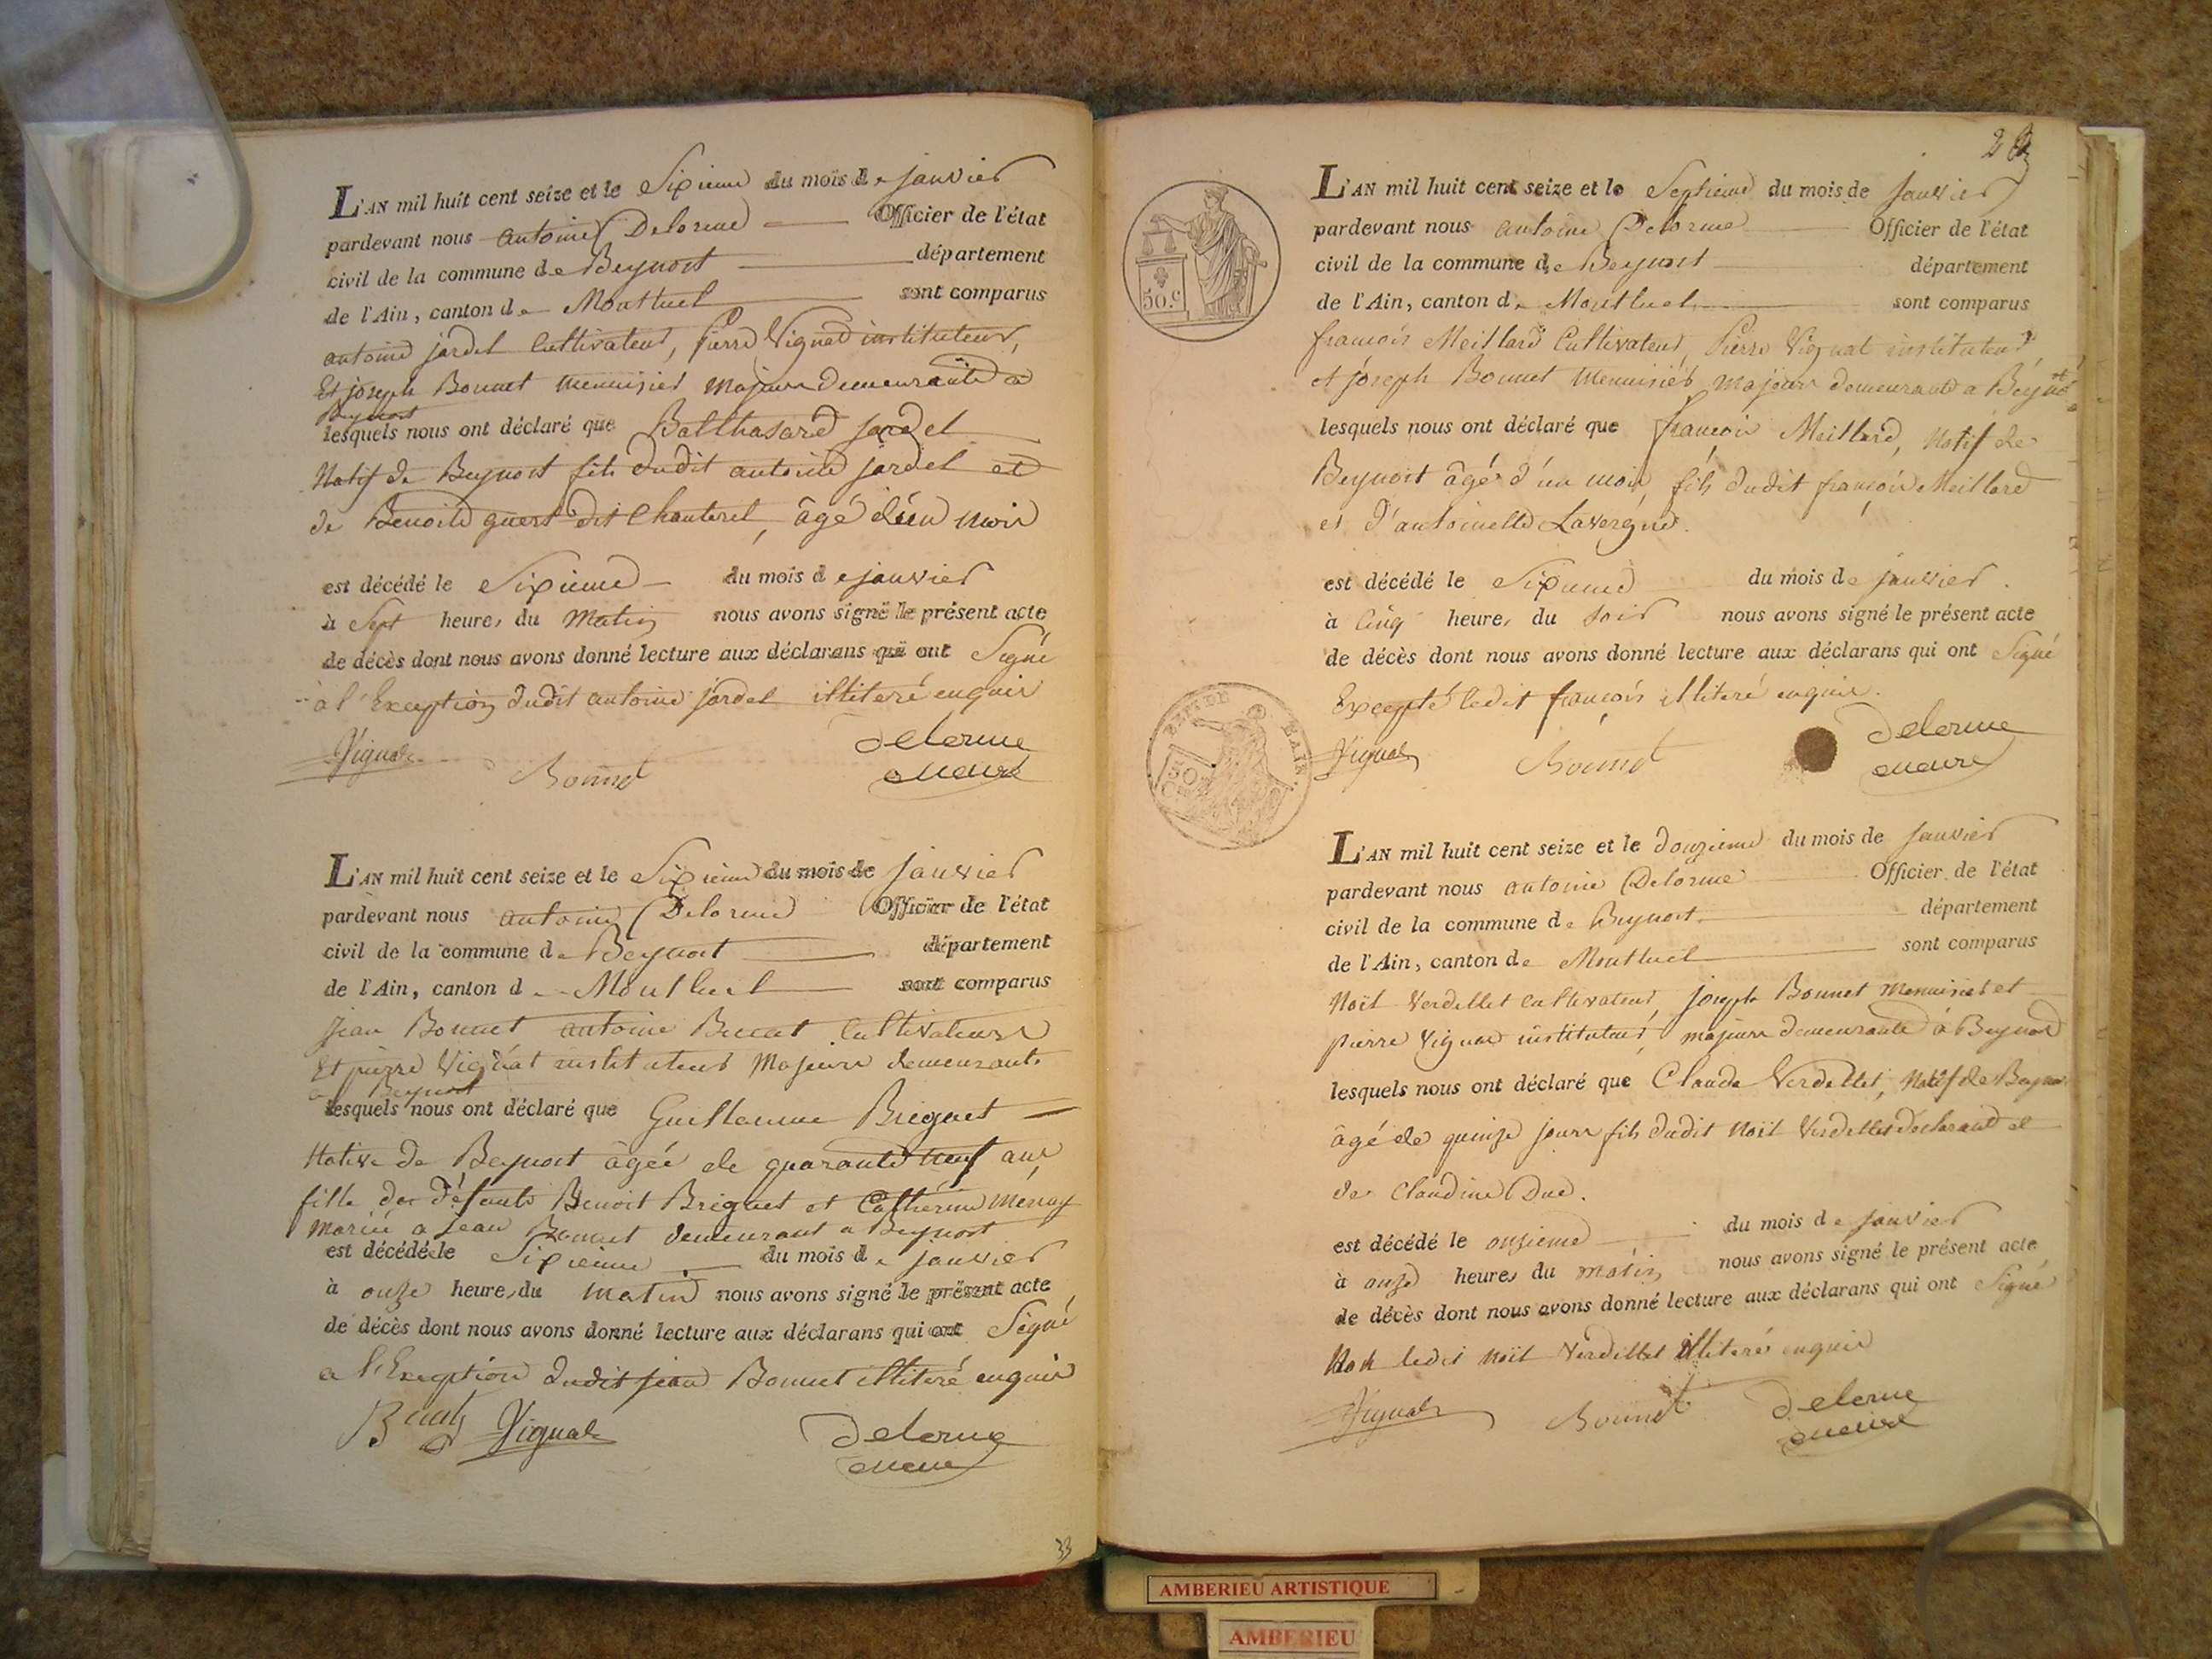 L'AN mil huit cent seize et le Sixieme du mois de janvier
pardevant nous antoine Delorme Officier de l'état
civil de la commune de Beynost département
de l'Ain, canton de Montluel sont comparus
antoine jardel Cultivateur, pierre Vignat instituteur,
Et joseph Bonnet menuisier majeurs demeurants a
Beynost
lesquels nous ont déclaré que Balthasard jardel
Natif de Beynost fils dudit antoine jardel et
de Benoite guert dit Chanterel, âgé d'un mois
est décédé le Sixieme du mois de janvier
à Sept heures du Matin nous avons signé le présent acte
de décès dont nous avons donné lecture aux déclarans qui ont Signé
à l'Exception dudit antoine jardel illiteré enquis
Vignat Bonnet Delorme
maire
L'AN mil huit cent seize et le Sixieme du mois de janvier
pardevant nous antoine Delorme Officier de l'état
civil de la commune de Beynost département
de l'Ain, canton de Montluel sont comparus
jean Bonnet antoine Bucat Cultivateurs
Et pierre Vignat instituteur Majeurs demeurants
a Beynost
lesquels nous ont déclaré que Guillaume Briguet
Native de Beynost âgée de quarante neuf ans
fille des défunts Benoit Briguet et Cathérine
mariée a jean Bonnet demeurant a Beynost
est décédée le Sixieme du mois de janvier
à onze heures du matin nous avons signé le présent acte
de décès dont nous avons donné lecture aux déclarans qui ont Signé
a l'Exception dudit jean Bonnet illiteré enquis
Bucat Vignat Delorme
maire
33
2
L'AN mil huit cent seize et le Septieme du mois de janvier
pardevant nous antoine Delorme Officier de l'état
civil de la commune de Beynost département
de l'Ain, canton de Montluel sont comparus
françois Meillard Cultivateur, Pierre Vignat instituteur
et joseph Bonnet Menuisier majeurs demeurants a Beynost
lesquels nous ont déclaré que françois Meillard, Natif de
Beynost âgé d'un mois, fils dudit françois Meillard
et d'antoinette Lavergne.
est décédé le Sixieme du mois de janvier.
à Cinq heures du soir nous avons signé le présent acte
de décès dont nous avons donné lecture aux déclarans qui ont Signé
Excepté ledit françois illiteré enquis.
Vignat Bonnet Delorme
maire
50.c
50
L'AN mil huit cent seize et le douzieme du mois de janvier
pardevant nous antoine Delorme Officier de l'état
civil de la commune de Beynost département
de l'Ain, canton de Montluel sont comparus
Noël Verdellet Cultivateur, joseph Bonnet Menuisier et
pierre Vignat instituteur, majeurs demeurants à Beynost
lesquels nous ont déclaré que Claude Verdellet, Natif de Beynost
âgé de quinze jours fils dudit Noël Verdellet declarant et
de Claudine Duc.
est décédé le onzieme du mois de janvier
à onze heures du matin nous avons signé le présent acte
de décès dont nous avons donné lecture aux déclarans qui ont Signé
Non ledit Noël Verdellet illiteré enquis
Vignat Bonnet Delorme
maire
AMBERIEU ARTISTIQUE
AMBERIEU